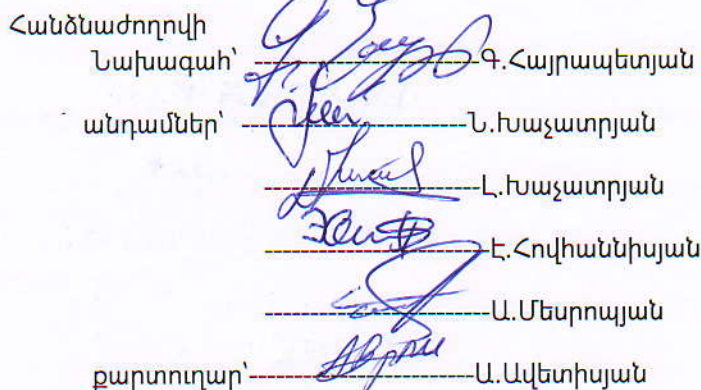 Հանձնաժողովի
Նախագահ՝ ---------------------Գ.Հայրապետյան
անդամներ՝ ---------------------Ն.Խաչատրյան
---------------------Լ.Խաչատրյան
---------------------Է.Հովհաննիսյան
---------------------Ա.Մեսրոպյան
քարտուղար՝---------------------Ա.Ավետիսյան